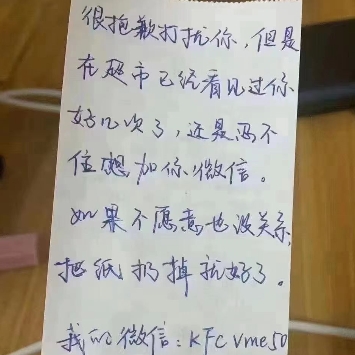 很抱歉打扰你，但是
在超市已经看见过你
好几次了，还是忍不
住想加你微信。
如果不愿意也没关系，
把纸扔掉就好了。
我的微信：KFCvme50